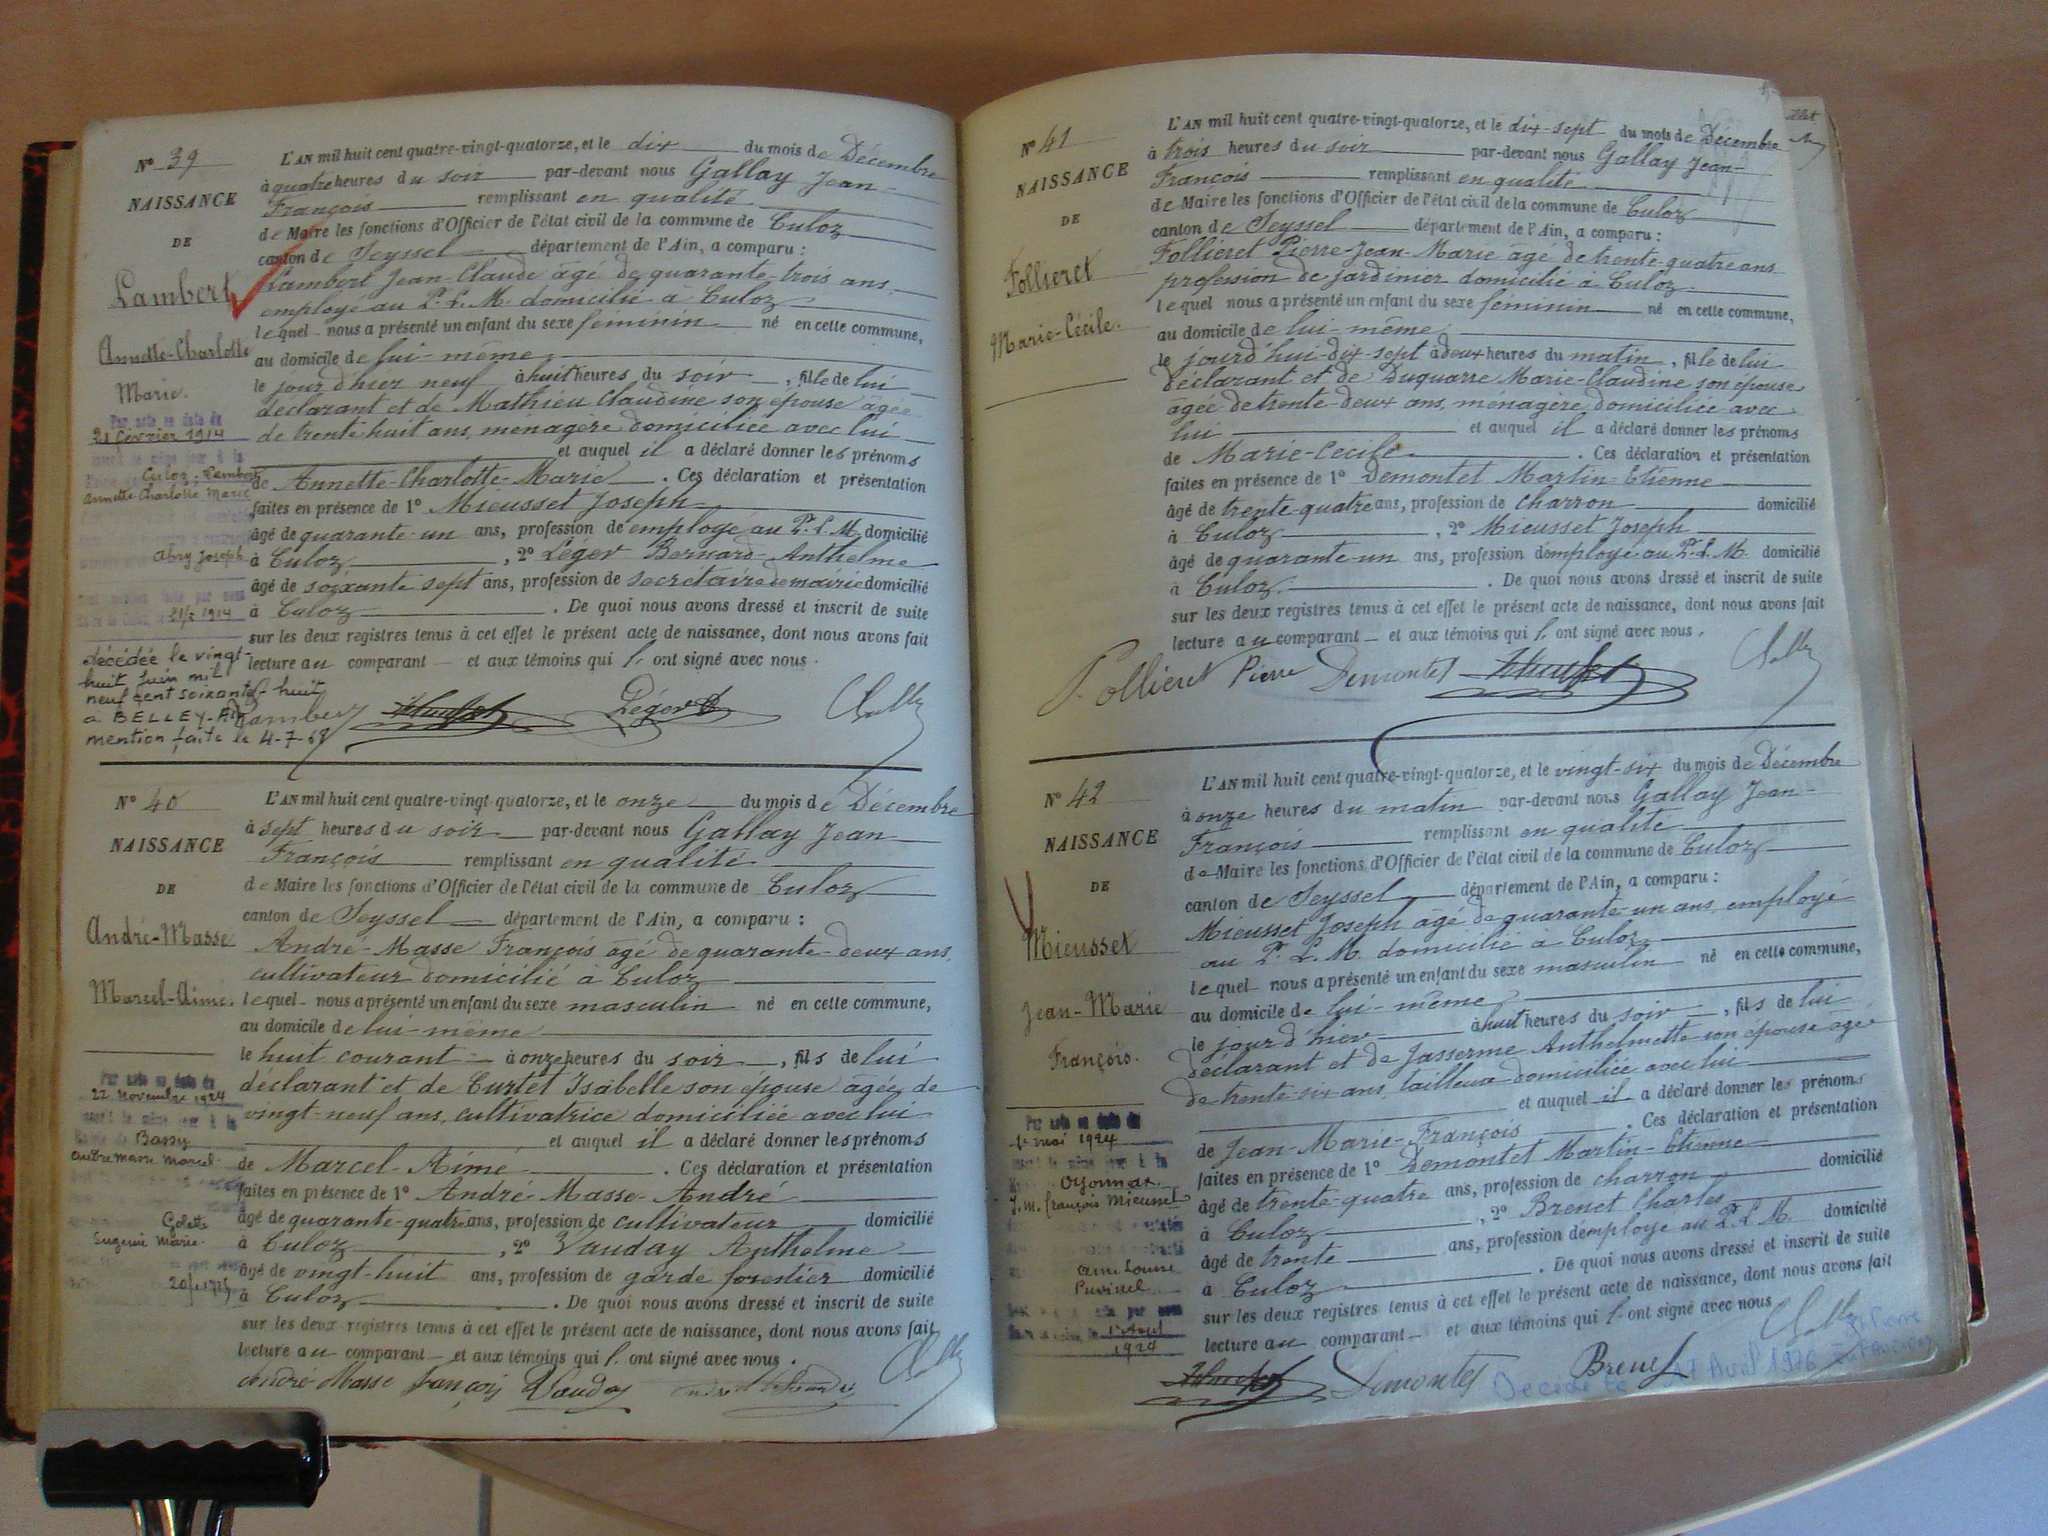 N° 39
NAISSANCE
DE
Lambert
Annette-Charlotte
Marie.
Par acte en date du
21 février 1914
Culoz. Lambert
Annette Charlotte Marie
Abry Joseph
21/2 1914
décédée le vingt-
huit juin mil
neuf cent soixante-huit
à BELLEY-
mention faite le 4-7-68
L'AN mil huit cent quatre-vingt-quatorze, et le dix du mois de Décembre
à quatre heures du soir par-devant nous Gallay Jean-
François remplissant en qualité
de Maire les fonctions d'Officier de l'état civil de la commune de Culoz
canton de Seyssel département de l'Ain, a comparu :
Lambert Jean-Claude âgé de quarante-trois ans,
employé au P. L. M. domicilié à Culoz
lequel nous a présenté un enfant du sexe féminin né en cette commune,
au domicile de lui-même
le jour d'hier neuf à huit heures du soir, fille de lui
déclarant et de Mathieu Claudine son épouse âgée
de trente huit ans, ménagère domiciliée avec lui
et auquel il a déclaré donner les prénoms
de Annette-Charlotte-Marie. Ces déclaration et présentation
faites en présence de 1° Mieusset Joseph
âgé de quarante-un ans, profession de employé au P. L. M. domicilié
à Culoz, 2° Léger Bernard-Anthelme
âgé de soixante sept ans, profession de secrétaire de mairie domicilié
à Culoz. De quoi nous avons dressé et inscrit de suite
sur les deux registres tenus à cet effet le présent acte de naissance, dont nous avons fait
lecture au comparant et aux témoins qui l'ont signé avec nous.
Lambert Léger
N° 40
NAISSANCE
DE
André-Masse
Marcel-Aimé.
Par acte en date du
22 Novembre 1924
Bassy
André Masse Marcel
Colette
Eugénie Marie
L'AN mil huit cent quatre-vingt-quatorze, et le onze du mois de Décembre
à sept heures du soir par-devant nous Gallay Jean
François remplissant en qualité
de Maire les fonctions d'Officier de l'état civil de la commune de Culoz
canton de Seyssel département de l'Ain, a comparu :
André-Masse François âgé de quarante-deux ans,
cultivateur domicilié à Culoz
lequel nous a présenté un enfant du sexe masculin né en cette commune,
au domicile de lui-même
le huit courant à onze heures du soir, fils de lui
déclarant et de Curtet Isabelle son épouse âgée de
vingt-neuf ans, cultivatrice domiciliée avec lui
et auquel il a déclaré donner les prénoms
de Marcel-Aimé. Ces déclaration et présentation
faites en présence de 1° André-Masse-André
âgé de quarante-quatre ans, profession de cultivateur domicilié
à Culoz, 2° Vauday Anthelme
âgé de vingt-huit ans, profession de garde forestier domicilié
à Culoz. De quoi nous avons dressé et inscrit de suite
sur les deux registres tenus à cet effet le présent acte de naissance, dont nous avons fait
lecture au comparant et aux témoins qui l'ont signé avec nous.
André Masse françois Vauday
N° 41
NAISSANCE
DE
Follieret
Marie-Cécile.
L'AN mil huit cent quatre-vingt-quatorze, et le dix-sept du mois de Décembre
à trois heures du soir par-devant nous Gallay Jean-
François remplissant en qualité
de Maire les fonctions d'Officier de l'état civil de la commune de Culoz
canton de Seyssel département de l'Ain, a comparu :
Follieret Pierre-Jean-Marie âgé de trente-quatre ans
profession de jardinier domicilié à Culoz.
lequel nous a présenté un enfant du sexe féminin né en cette commune,
au domicile de lui-même
le jourd'hui dix-sept à deux heures du matin, fille de lui
déclarant et de Duquarre Marie-Claudine son épouse
âgée de trente-deux ans, ménagère domiciliée avec
lui et auquel il a déclaré donner les prénoms
de Marie-Cécile. Ces déclaration et présentation
faites en présence de 1° Demontet Martin-Etienne
âgé de trente-quatre ans, profession de charron domicilié
à Culoz, 2° Mieusset Joseph
âgé de quarante-un ans, profession d'employé au P. L. M. domicilié
à Culoz. De quoi nous avons dressé et inscrit de suite
sur les deux registres tenus à cet effet le présent acte de naissance, dont nous avons fait
lecture au comparant et aux témoins qui l'ont signé avec nous.
Follieret Pierre Demontet
N° 42
NAISSANCE
DE
Mieusset
Jean-Marie
François.
Par acte en date du
1er mai 1924
Oyonnax
J. M. François Mieusset
Louise
1924
L'AN mil huit cent quatre-vingt-quatorze, et le vingt-six du mois de Décembre
à onze heures du matin par-devant nous Gallay Jean-
François remplissant en qualité
de Maire les fonctions d'Officier de l'état civil de la commune de Culoz
canton de Seyssel département de l'Ain, a comparu :
Mieusset Joseph âgé de quarante-un ans, employé
au P. L. M. domicilié à Culoz
lequel nous a présenté un enfant du sexe masculin né en cette commune,
au domicile de lui-même
le jour d'hier à huit heures du soir, fils de lui
déclarant et de Jasserme Anthelmette son épouse âgée
de trente-six ans, tailleuse domiciliée avec lui
et auquel il a déclaré donner les prénoms
de Jean-Marie-François. Ces déclaration et présentation
faites en présence de 1° Demontet Martin-Etienne
âgé de trente-quatre ans, profession de charron domicilié
à Culoz, 2° Brenet Charles
âgé de trente ans, profession d'employé au P. L. M. domicilié
à Culoz. De quoi nous avons dressé et inscrit de suite
sur les deux registres tenus à cet effet le présent acte de naissance, dont nous avons fait
lecture au comparant et aux témoins qui l'ont signé avec nous
Demontet Brenet
Décédé le Avril 1976